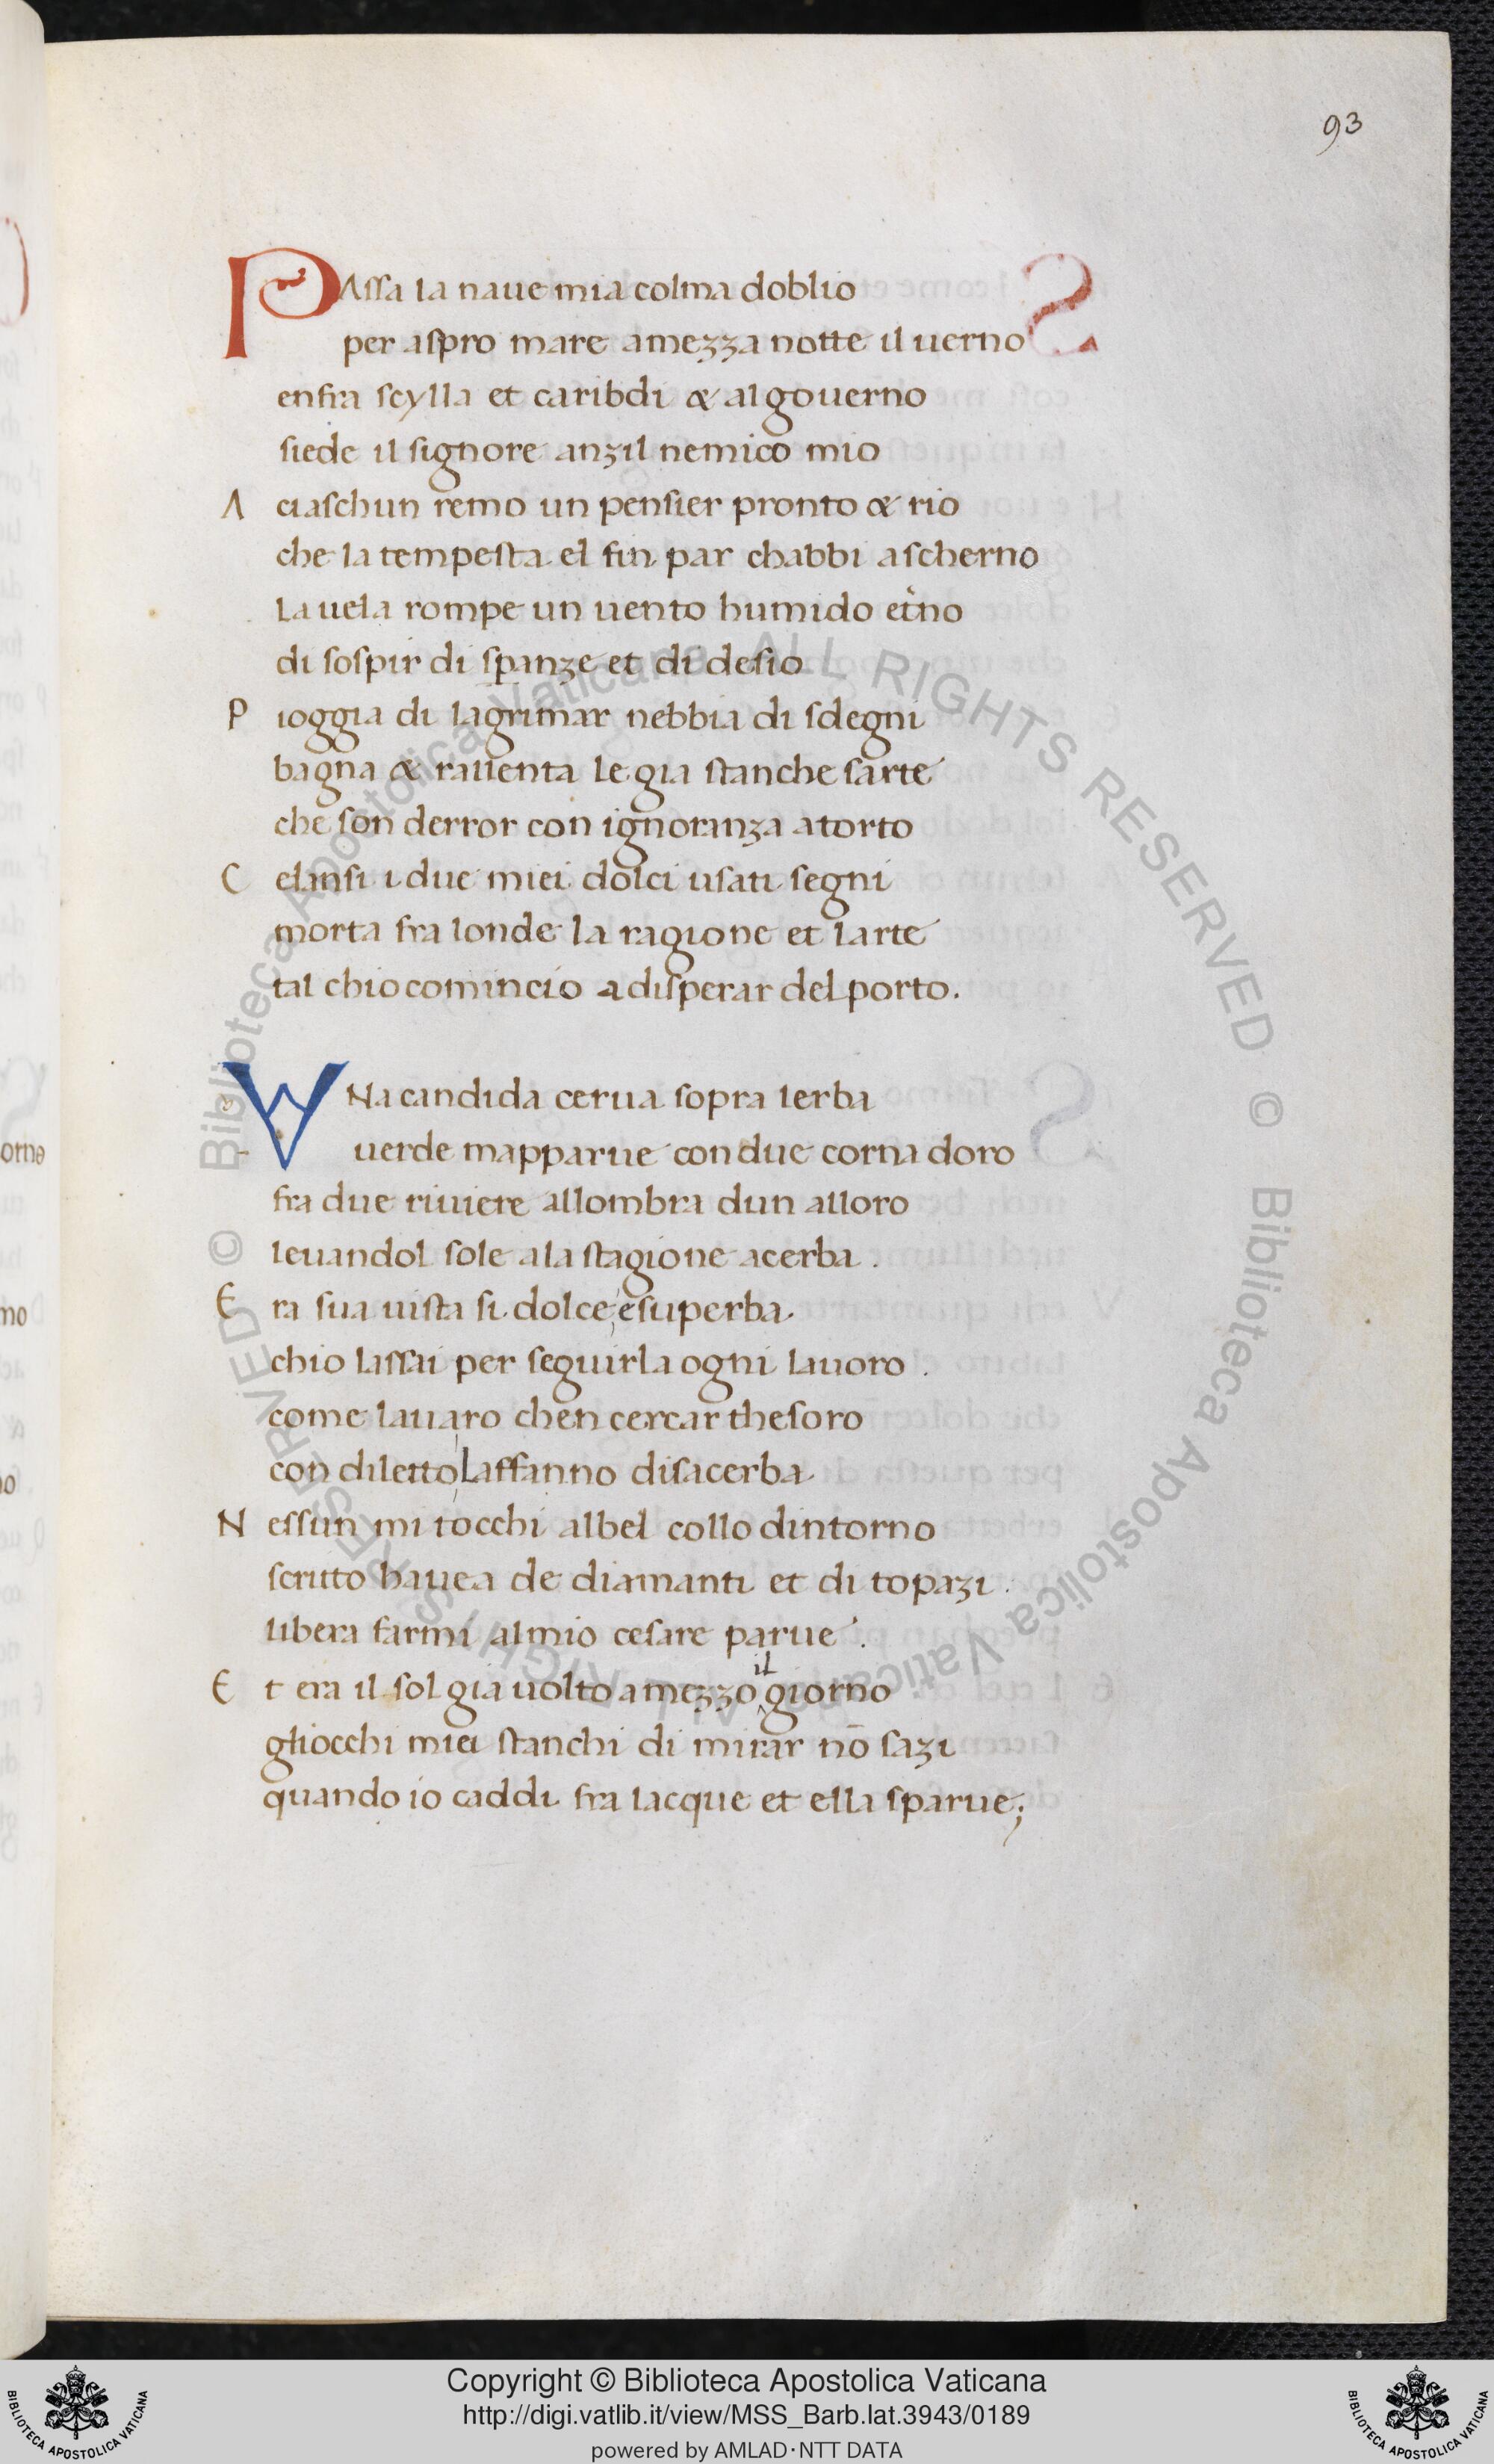 93
PAssa la naue mia colma doblio
per aspro mare amezza notte il uerno
enfra scylla et caribdi & al gouerno
siede il signore anzil nemico mio
A ciaschun remo un pensier pronto & rio
che la tempesta el fin par chabbi a scherno
La uela rompe un uento humido et̓no
di sospir di sꝑanze et di desio
P ioggia di lagrimar nebbia di sdegni
bagna & rallenta le gia stanche sarte
che son derror con ignoranza a torto
C elansi i due miei dolci usati segni
morta fra londe la ragione et larte
tal chio comincio a disperar del porto.
VNa candida cerua sopra lerba
uerde mapparue con due corna doro
fra due riuiere allombra dun alloro
leuandol sole a la stagione acerba.
E ra sua uista si dolce e superba.
chio lassai per seguirla ogni lauoro.
come lauaro chen cercar thesoro
con diletto Laffanno disacerba.
N essun mi tocchi al bel collo dintorno
scritto hauea de diamanti et di topazi.
libera farmi al mio cesare parue.
E t era il sol gia uolto amezzo il giorno
gliocchi miei stanchi di mirar nō sazi
quando io caddi fra lacque et ella sparue;
orno
mo
© Biblioteca Apostolica Vaticana ALL RIGHTS RESERVED © Biblioteca Apostolica Vaticana ALL RIGHTS RESERVED
BIBLIOTECA APOSTOLICA VATICANA
Copyright © Biblioteca Apostolica Vaticana
http://digi.vatlib.it/view/MSS_Barb.lat.3943/0189
powered by AMLAD·NTT DATA
BIBLIOTECA APOSTOLICA VATICANA